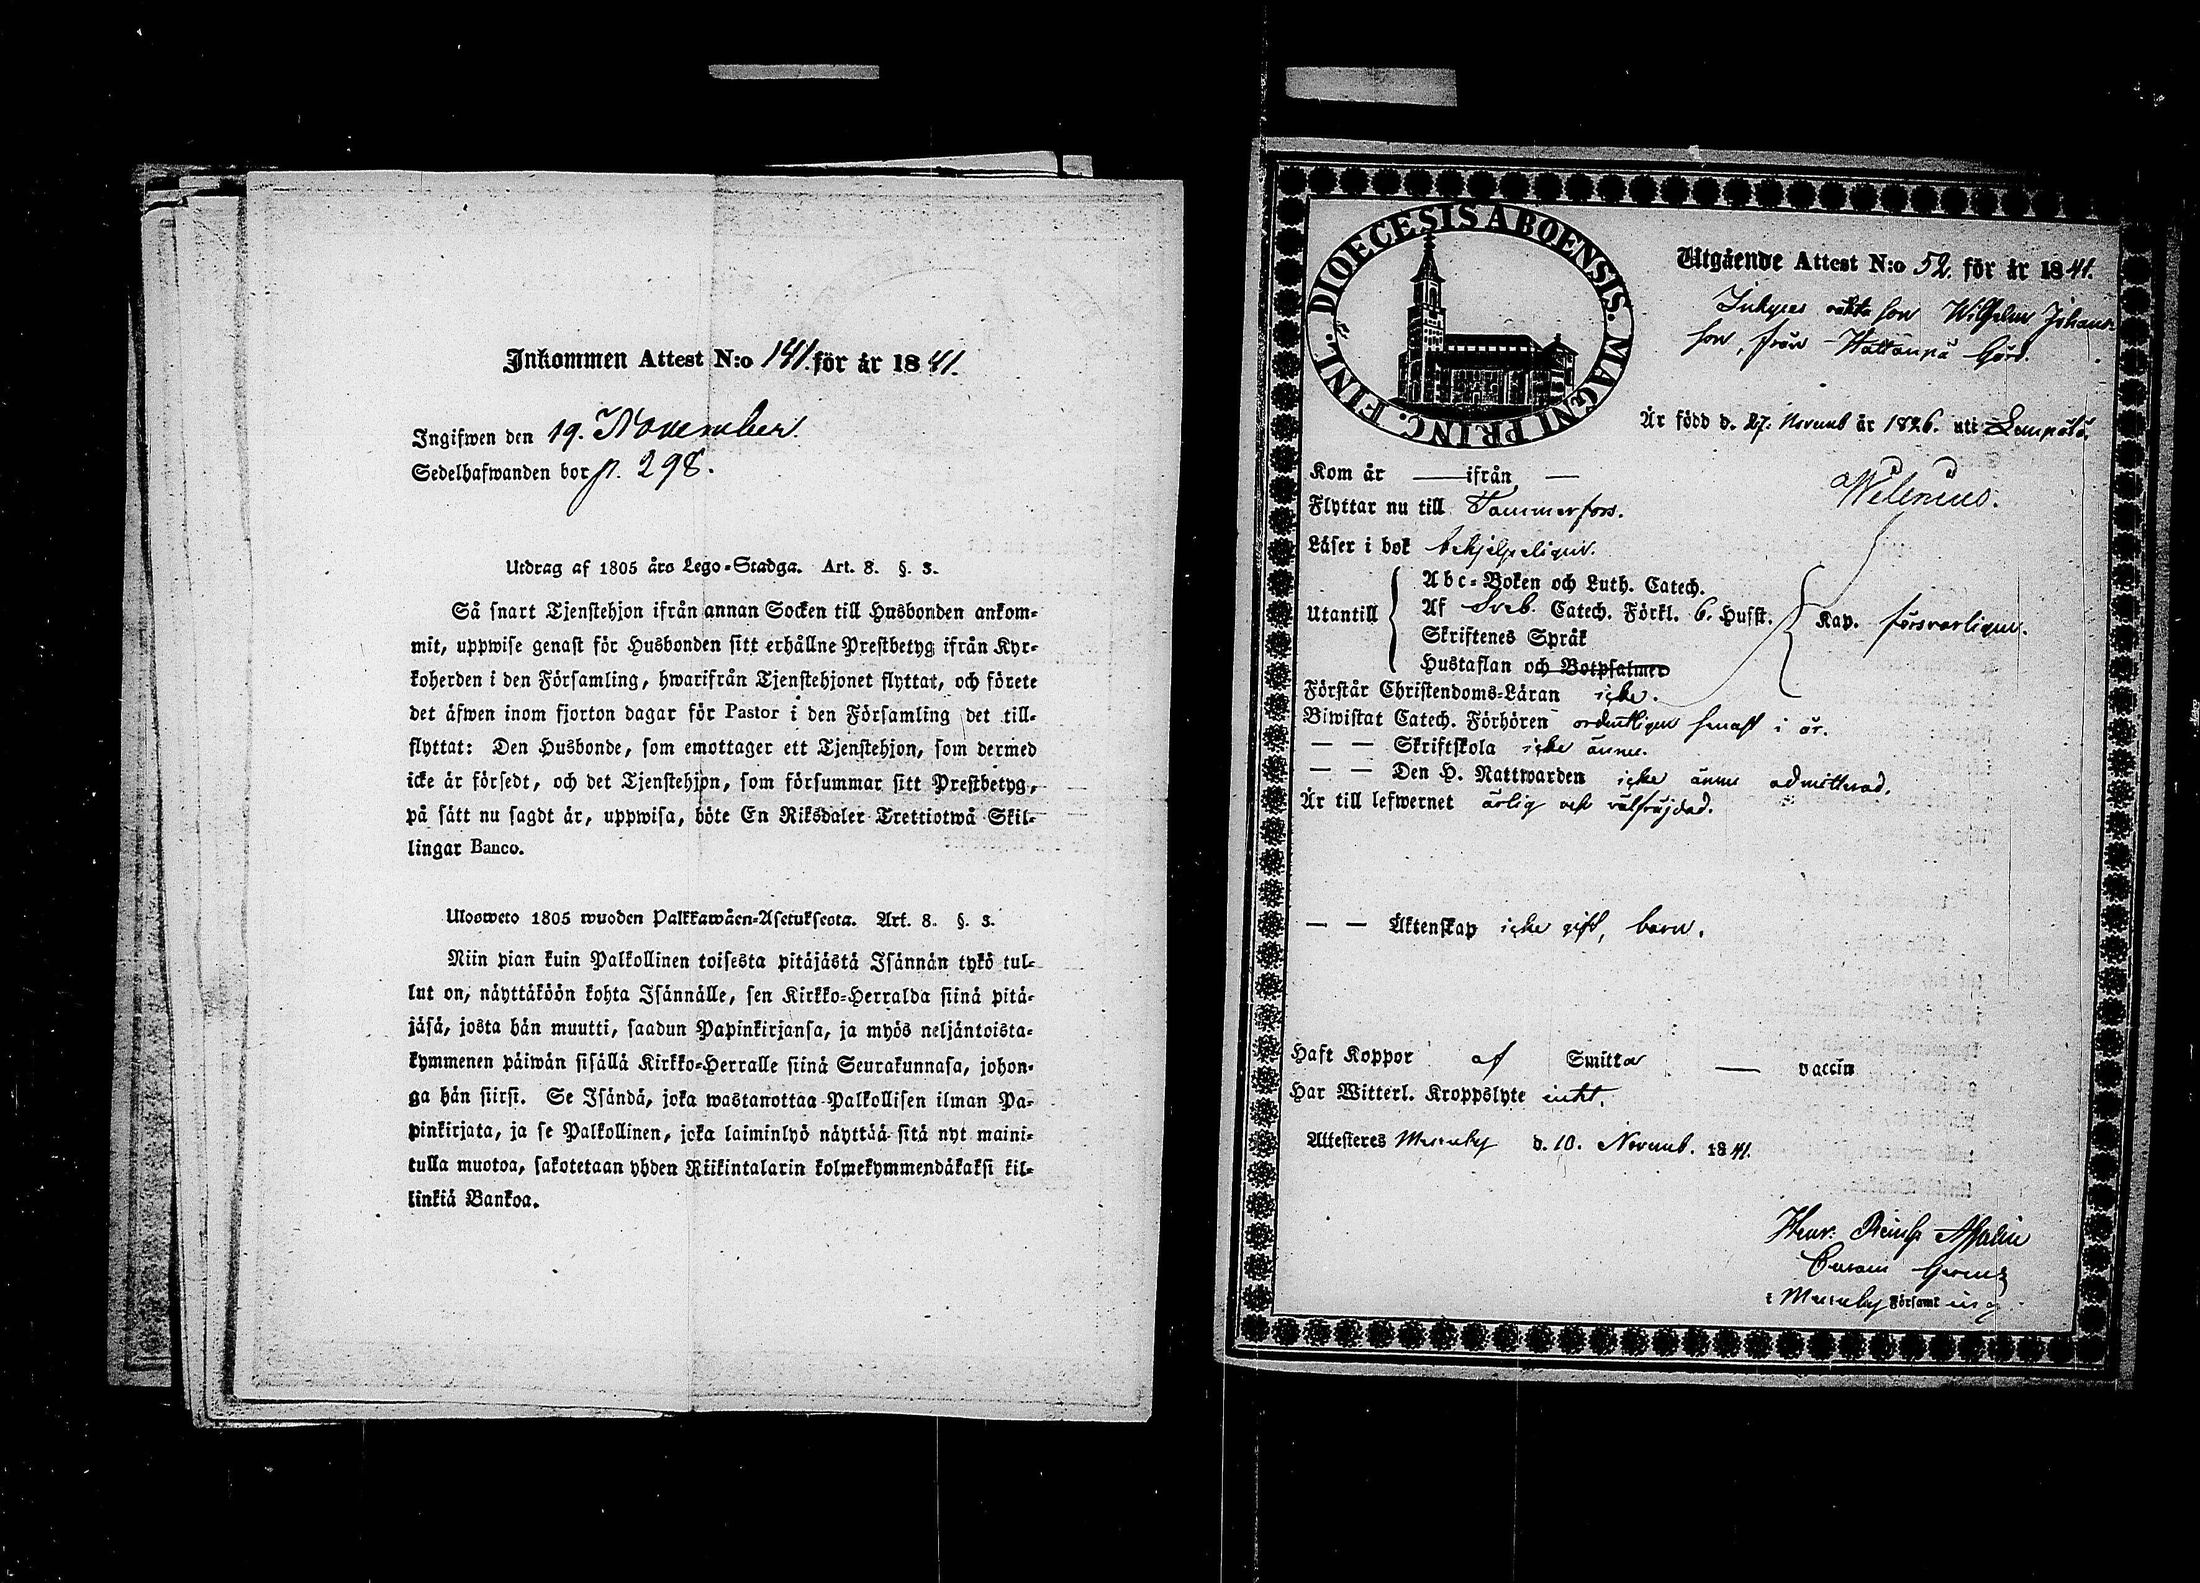 Inkommen Attest N:o 141. för år 1841.
Ingifwen den 19. November.
Sedelhafwanden bor p. 298.
Utdrag af 1805 års Lego-Stadga. Art. 8. §. 3.
Så snart Tjenstehjon ifrån annan Socken till Husbonden ankom-
mit, uppwise genast för Husbonden sitt erhållne Prestbetyg ifrån Kyr-
koherden i den Församling, hwarifrån Tjenstehjonet flyttat, och förete
det äfwen inom fjorton dagar för Pastor i den Församling det till-
flyttat: Den Husbonde, som emottager ett Tjenstehjon, som dermed
icke är försedt, och det Tjenstehjon, som försummar sitt Prestbetyg,
på sätt nu sagdt är, uppwisa, böte En Riksdaler Trettiotwå Skil-
lingar Banco.
Ulosweto 1805 wuoden Palkkawäen-Asetuksesta. Art. 8. §. 3.
Niin pian kuin Palkollinen toisesta pitäjästä Isännän tykö tul-
lut on, näyttäköön kohta Isännälle, sen Kirkko-Herralda siinä pitä-
jäsä, josta hän muutti, saadun Papinkirjansa, ja myös neljäntoista-
kymmenen päiwän sisällä Kirkko-Herralle siinä Seurakunnasa, johon-
ga hän siirsi. Se Isändä, joka wastanottaa Palkollisen ilman Pa-
pinkirjata, ja se Palkollinen, joka laiminlyö näyttää sitä nyt maini-
tulla muotoa, sakotetaan yhden Riikintalarin kolmekymmendäkaksi kil-
linkiä Bankoa.
DIOECESIS ABOENSIS. MAGNI PRINC. FINL.
Utgående Attest N:o 52. för år 1841.
Inhyses äkta son Wilhelm Johans
son, från Hattanpä Gård.
Är född d. 27. Novemb år 1826. uti Lempälä
Kom år — ifrån —
Welenius.
Flyttar nu till Tammerfors.
Läser i bok behjelpeligen.
Utantill
Abc-Boken och Luth. Catech.
Af Sveb. Catech. Förkl. 6. Husst.
Skriftenes Språk
Hustaflan och Botpsalmer
Kap. försvarligen.
Förstår Christendoms-Läran icke.
Biwistat Catech. Förhören ordentligen senast i år.
— — Skriftskola icke ännu.
— — Den H. Nattwarden icke ännu admitterad.
Är till lefwernet ärlig och välfräjdad.
— — Äktenskap icke gift, barn.
Haft Koppor af Smitta — vaccin
Har Witterl. Kroppslyte intet.
Attesteres Messuby d. 10. Novemb. 1841.
Henr. Reinh Malin
i Messuby Församling